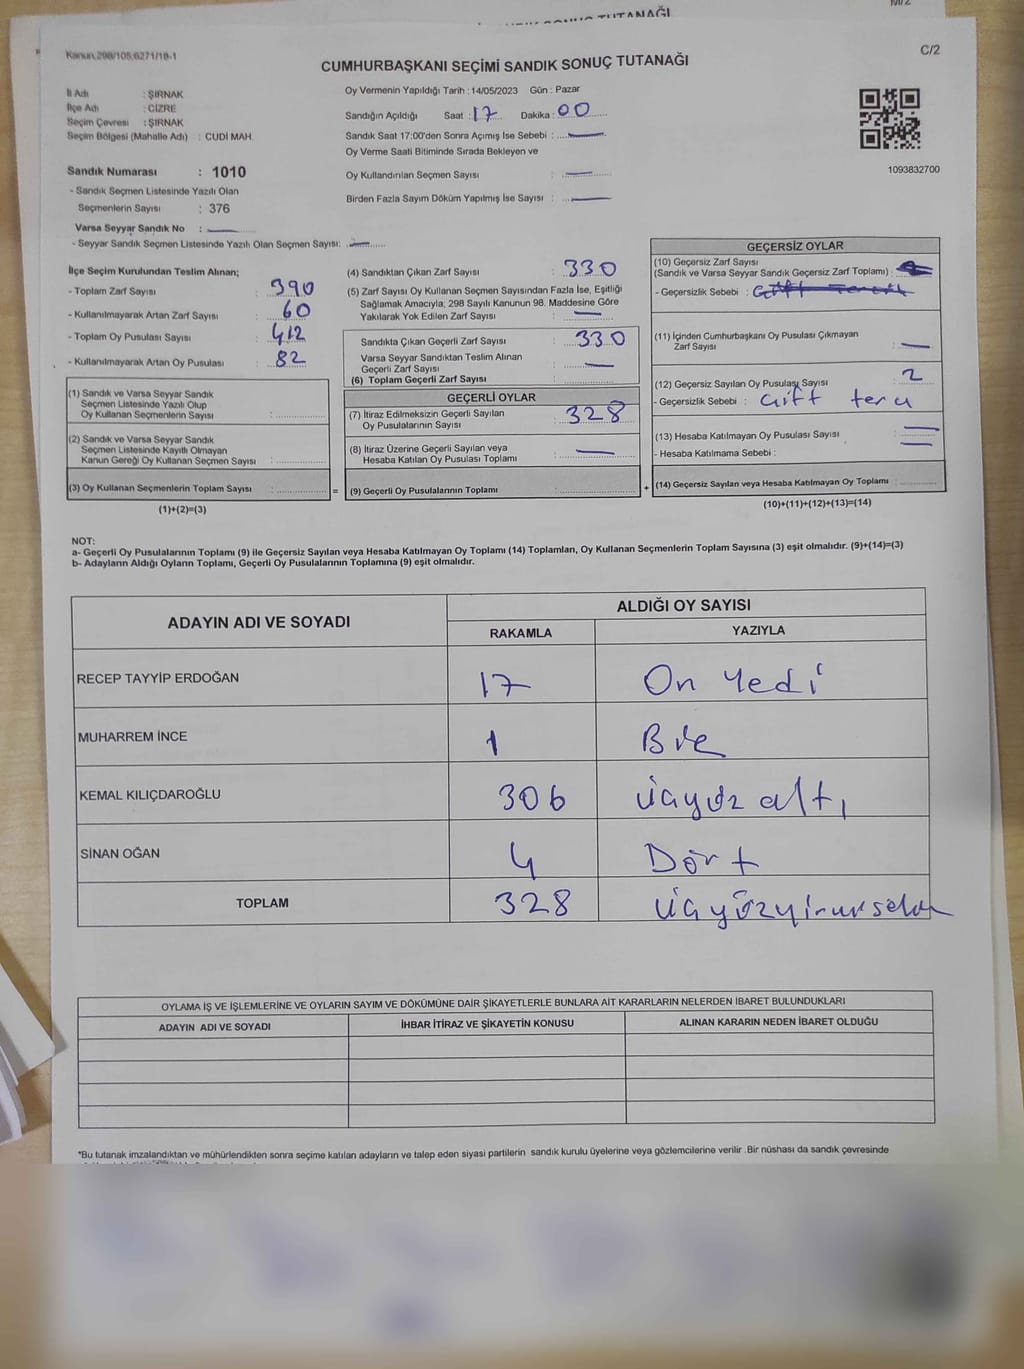 SONUÇ TUTANAĞI
Kanun,298/105,6271/18-1
C/2
CUMHURBAŞKANI SEÇİMİ SANDIK SONUÇ TUTANAĞI
İl Adı : ŞIRNAK
İlçe Adı : CİZRE
Seçim Çevresi : ŞIRNAK
Seçim Bölgesi (Mahalle Adı) : CUDİ MAH.
Oy Vermenin Yapıldığı Tarih : 14/05/2023 Gün : Pazar
Sandığın Açıldığı Saat : 17 Dakika : 00
Sandık Saat 17:00'den Sonra Açımış İse Sebebi :
Oy Verme Saati Bitiminde Sırada Bekleyen ve
Oy Kullandırılan Seçmen Sayısı :
Birden Fazla Sayım Döküm Yapılmış İse Sayısı :
1093832700
Sandık Numarası : 1010
- Sandık Seçmen Listesinde Yazılı Olan
Seçmenlerin Sayısı : 376
Varsa Seyyar Sandık No :
- Seyyar Sandık Seçmen Listesinde Yazılı Olan Seçmen Sayısı:
İlçe Seçim Kurulundan Teslim Alınan;
- Toplam Zarf Sayısı : 390
- Kullanılmayarak Artan Zarf Sayısı : 60
- Toplam Oy Pusulası Sayısı : 412
- Kullanılmayarak Artan Oy Pusulası : 82
(1) Sandık ve Varsa Seyyar Sandık
Seçmen Listesinde Yazılı Olup
Oy Kullanan Seçmenlerin Sayısı :
(2) Sandık ve Varsa Seyyar Sandık
Seçmen Listesinde Kayıtlı Olmayan
Kanun Gereği Oy Kullanan Seçmen Sayısı :
(3) Oy Kullanan Seçmenlerin Toplam Sayısı :
(1)+(2)=(3)
(4) Sandıktan Çıkan Zarf Sayısı : 330
(5) Zarf Sayısı Oy Kullanan Seçmen Sayısından Fazla İse, Eşitliği
Sağlamak Amacıyla; 298 Sayılı Kanunun 98. Maddesine Göre
Yakılarak Yok Edilen Zarf Sayısı :
Sandıkta Çıkan Geçerli Zarf Sayısı : 330
Varsa Seyyar Sandıktan Teslim Alınan
Geçerli Zarf Sayısı :
(6) Toplam Geçerli Zarf Sayısı :
GEÇERLİ OYLAR
(7) İtiraz Edilmeksizin Geçerli Sayılan
Oy Pusulalarının Sayısı : 328
(8) İtiraz Üzerine Geçerli Sayılan veya
Hesaba Katılan Oy Pusulası Toplamı :
= (9) Geçerli Oy Pusulalarının Toplamı :
GEÇERSİZ OYLAR
(10) Geçersiz Zarf Sayısı
(Sandık ve Varsa Seyyar Sandık Geçersiz Zarf Toplamı) :
- Geçersizlik Sebebi :
(11) İçinden Cumhurbaşkanı Oy Pusulası Çıkmayan
Zarf Sayısı :
(12) Geçersiz Sayılan Oy Pusulası Sayısı : 2
- Geçersizlik Sebebi : Çift
(13) Hesaba Katılmayan Oy Pusulası Sayısı :
- Hesaba Katılmama Sebebi :
+ (14) Geçersiz Sayılan veya Hesaba Katılmayan Oy Toplamı :
(10)+(11)+(12)+(13)=(14)
NOT:
a- Geçerli Oy Pusulalarının Toplamı (9) ile Geçersiz Sayılan veya Hesaba Katılmayan Oy Toplamı (14) Toplamları, Oy Kullanan Seçmenlerin Toplam Sayısına (3) eşit olmalıdır. (9)+(14)=(3)
b- Adayların Aldığı Oyların Toplamı, Geçerli Oy Pusulalarının Toplamına (9) eşit olmalıdır.
ADAYIN ADI VE SOYADI
ALDIĞI OY SAYISI
RAKAMLA YAZIYLA
RECEP TAYYİP ERDOĞAN 17 On Yedi
MUHARREM İNCE 1 Bir
KEMAL KILIÇDAROĞLU 306 üçyüz altı
SİNAN OĞAN 4 Dört
TOPLAM 328
OYLAMA İŞ VE İŞLEMLERİNE VE OYLARIN SAYIM VE DÖKÜMÜNE DAİR ŞİKAYETLERLE BUNLARA AİT KARARLARIN NELERDEN İBARET BULUNDUKLARI
ADAYIN ADI VE SOYADI İHBAR İTİRAZ VE ŞİKAYETİN KONUSU ALINAN KARARIN NEDEN İBARET OLDUĞU
*Bu tutanak imzalandıktan ve mühürlendikten sonra seçime katılan adayların ve talep eden siyasi partilerin sandık kurulu üyelerine veya gözlemcilerine verilir .Bir nüshası da sandık çevresinde